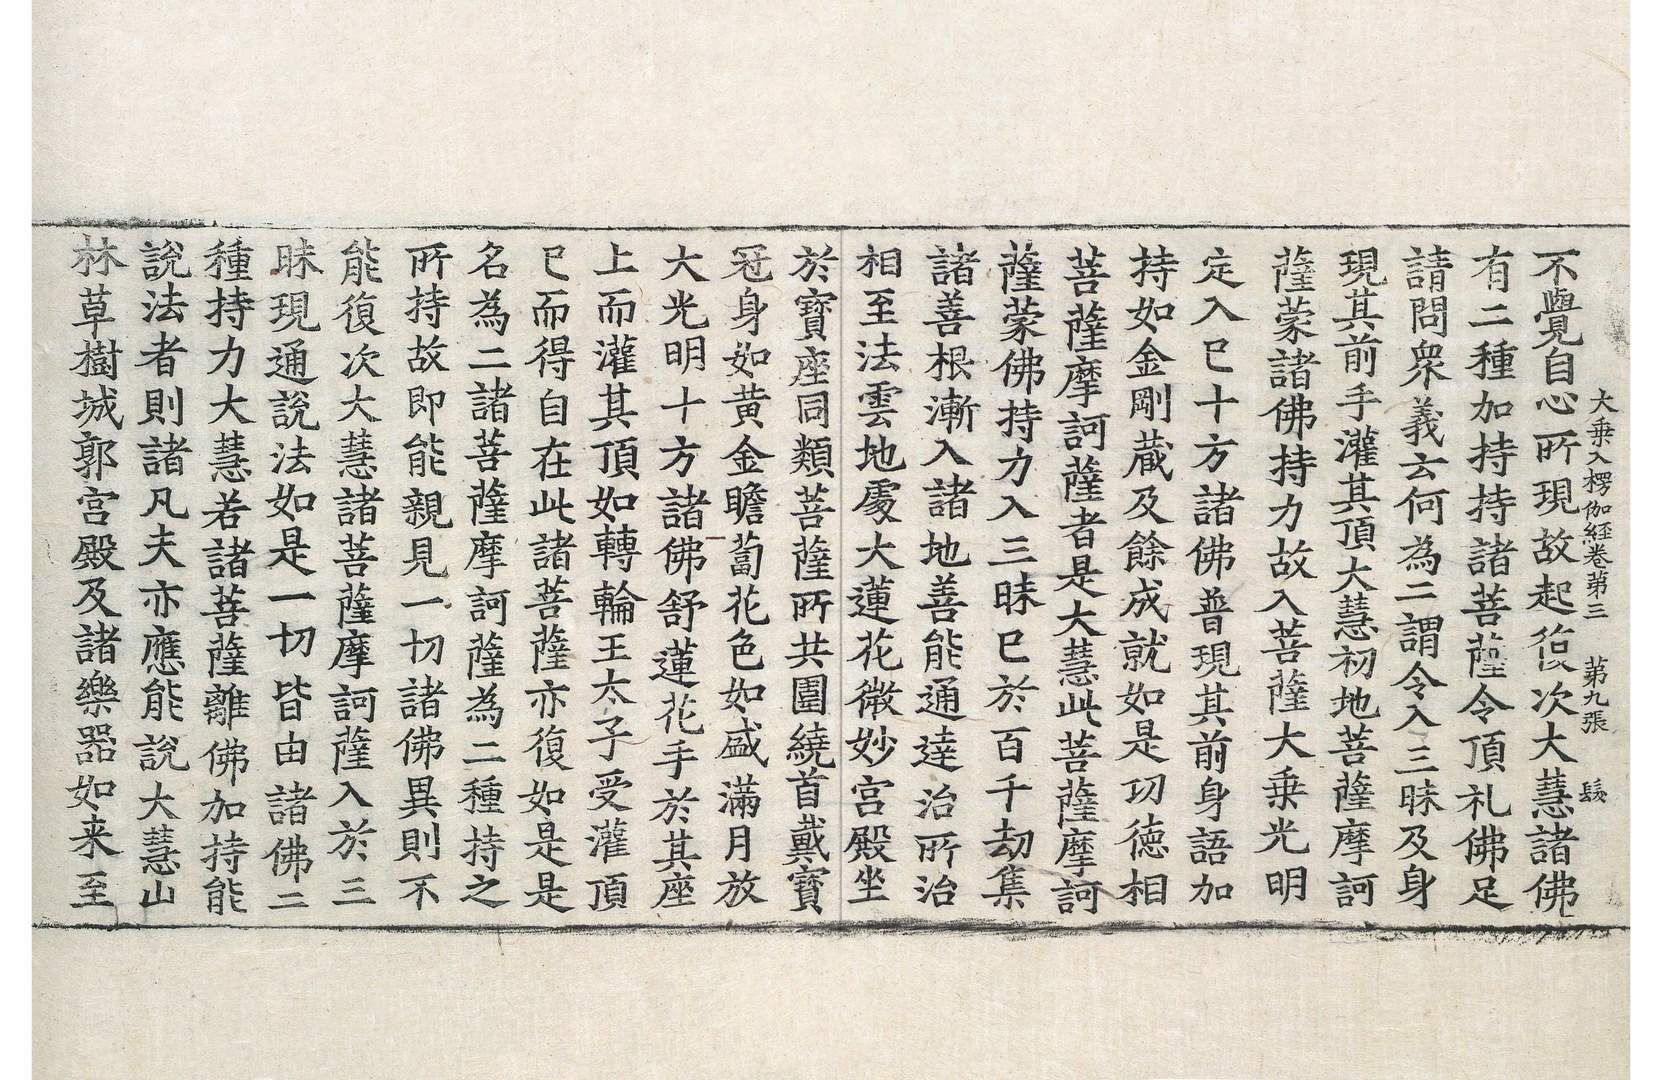 大乗入楞伽経卷第三　第九張　髮
不覺自心所現故起復次大慧諸佛
有二種加持持諸菩薩令頂礼佛足
請問衆義云何為二謂令入三昧及身
現其前手灌其頂大慧初地菩薩摩訶
薩蒙諸佛持力故入菩薩大乗光明
定入已十方諸佛普現其前身語加
持如金剛蔵及餘成就如是功徳相
菩薩摩訶薩者是大慧此菩薩摩訶
薩蒙佛持力入三昧已於百千劫集
諸善根漸入諸地善能通達治所治
相至法雲地處大蓮花微妙宫殿坐
於寶座同類菩薩所共圍繞首戴寶
冠身如黄金瞻蔔花色如盛滿月放
大光明十方諸佛舒蓮花手於其座
上而灌其頂如轉輪王太子受灌頂
已而得自在此諸菩薩亦復如是是
名為二諸菩薩摩訶薩為二種持之
所持故即能親見一切諸佛異則不
能復次大慧諸菩薩摩訶薩入於三
昧現通說法如是一切皆由諸佛二
種持力大慧若諸菩薩離佛加持能
說法者則諸凡夫亦應能說大慧山
林草樹城郭宫殿及諸樂器如来至